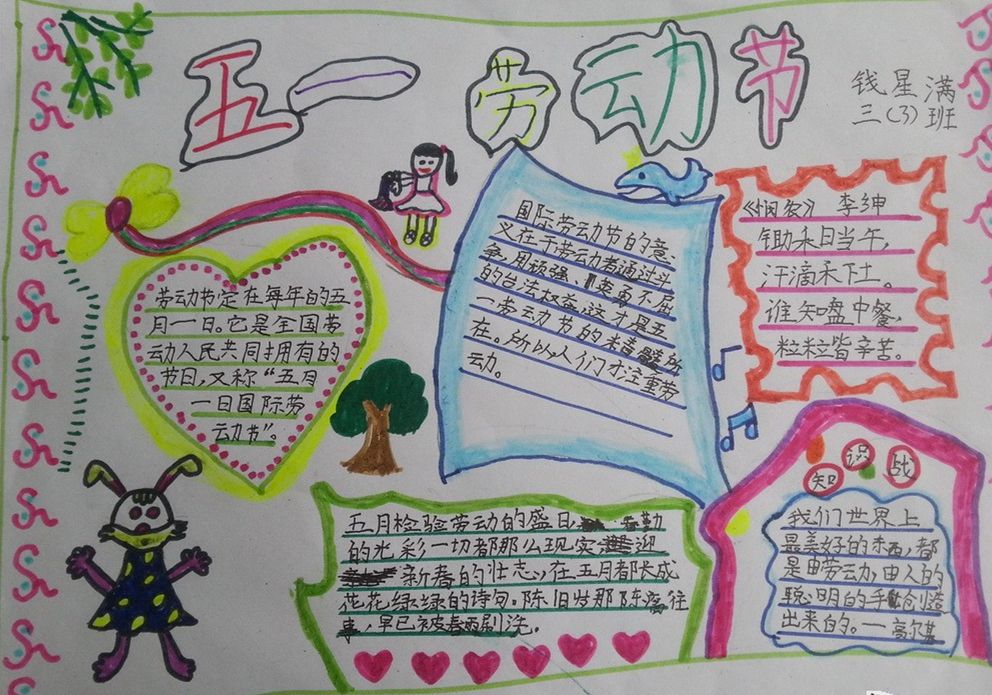 五一劳动节
钱星满
三(3)班
劳动节定在每年的五
月一日。它是全国劳
动人民共同拥有的
节日,又称“五月
一日国际劳
动节”。
国际劳动节的意
义在于劳动者通过斗
争,用顽强、英勇不屈
的合法权益,这才是五
一劳动节的来 所
在。所以,人们才注重劳
动。
《悯农》 李绅
锄禾日当午,
汗滴禾下土。
谁知盘中餐,
粒粒皆辛苦。
五月检验劳动的盛日, 勤
的光彩一切都那么现实 迎
新春的壮志,在五月都长成
花花绿绿的诗句。陈旧岁那陈腐往
事,早已被春雨刷洗。
知识战
我们世界上
最美好的东西,都
是由劳动,由人的
聪明的手创造
出来的。一高尔基